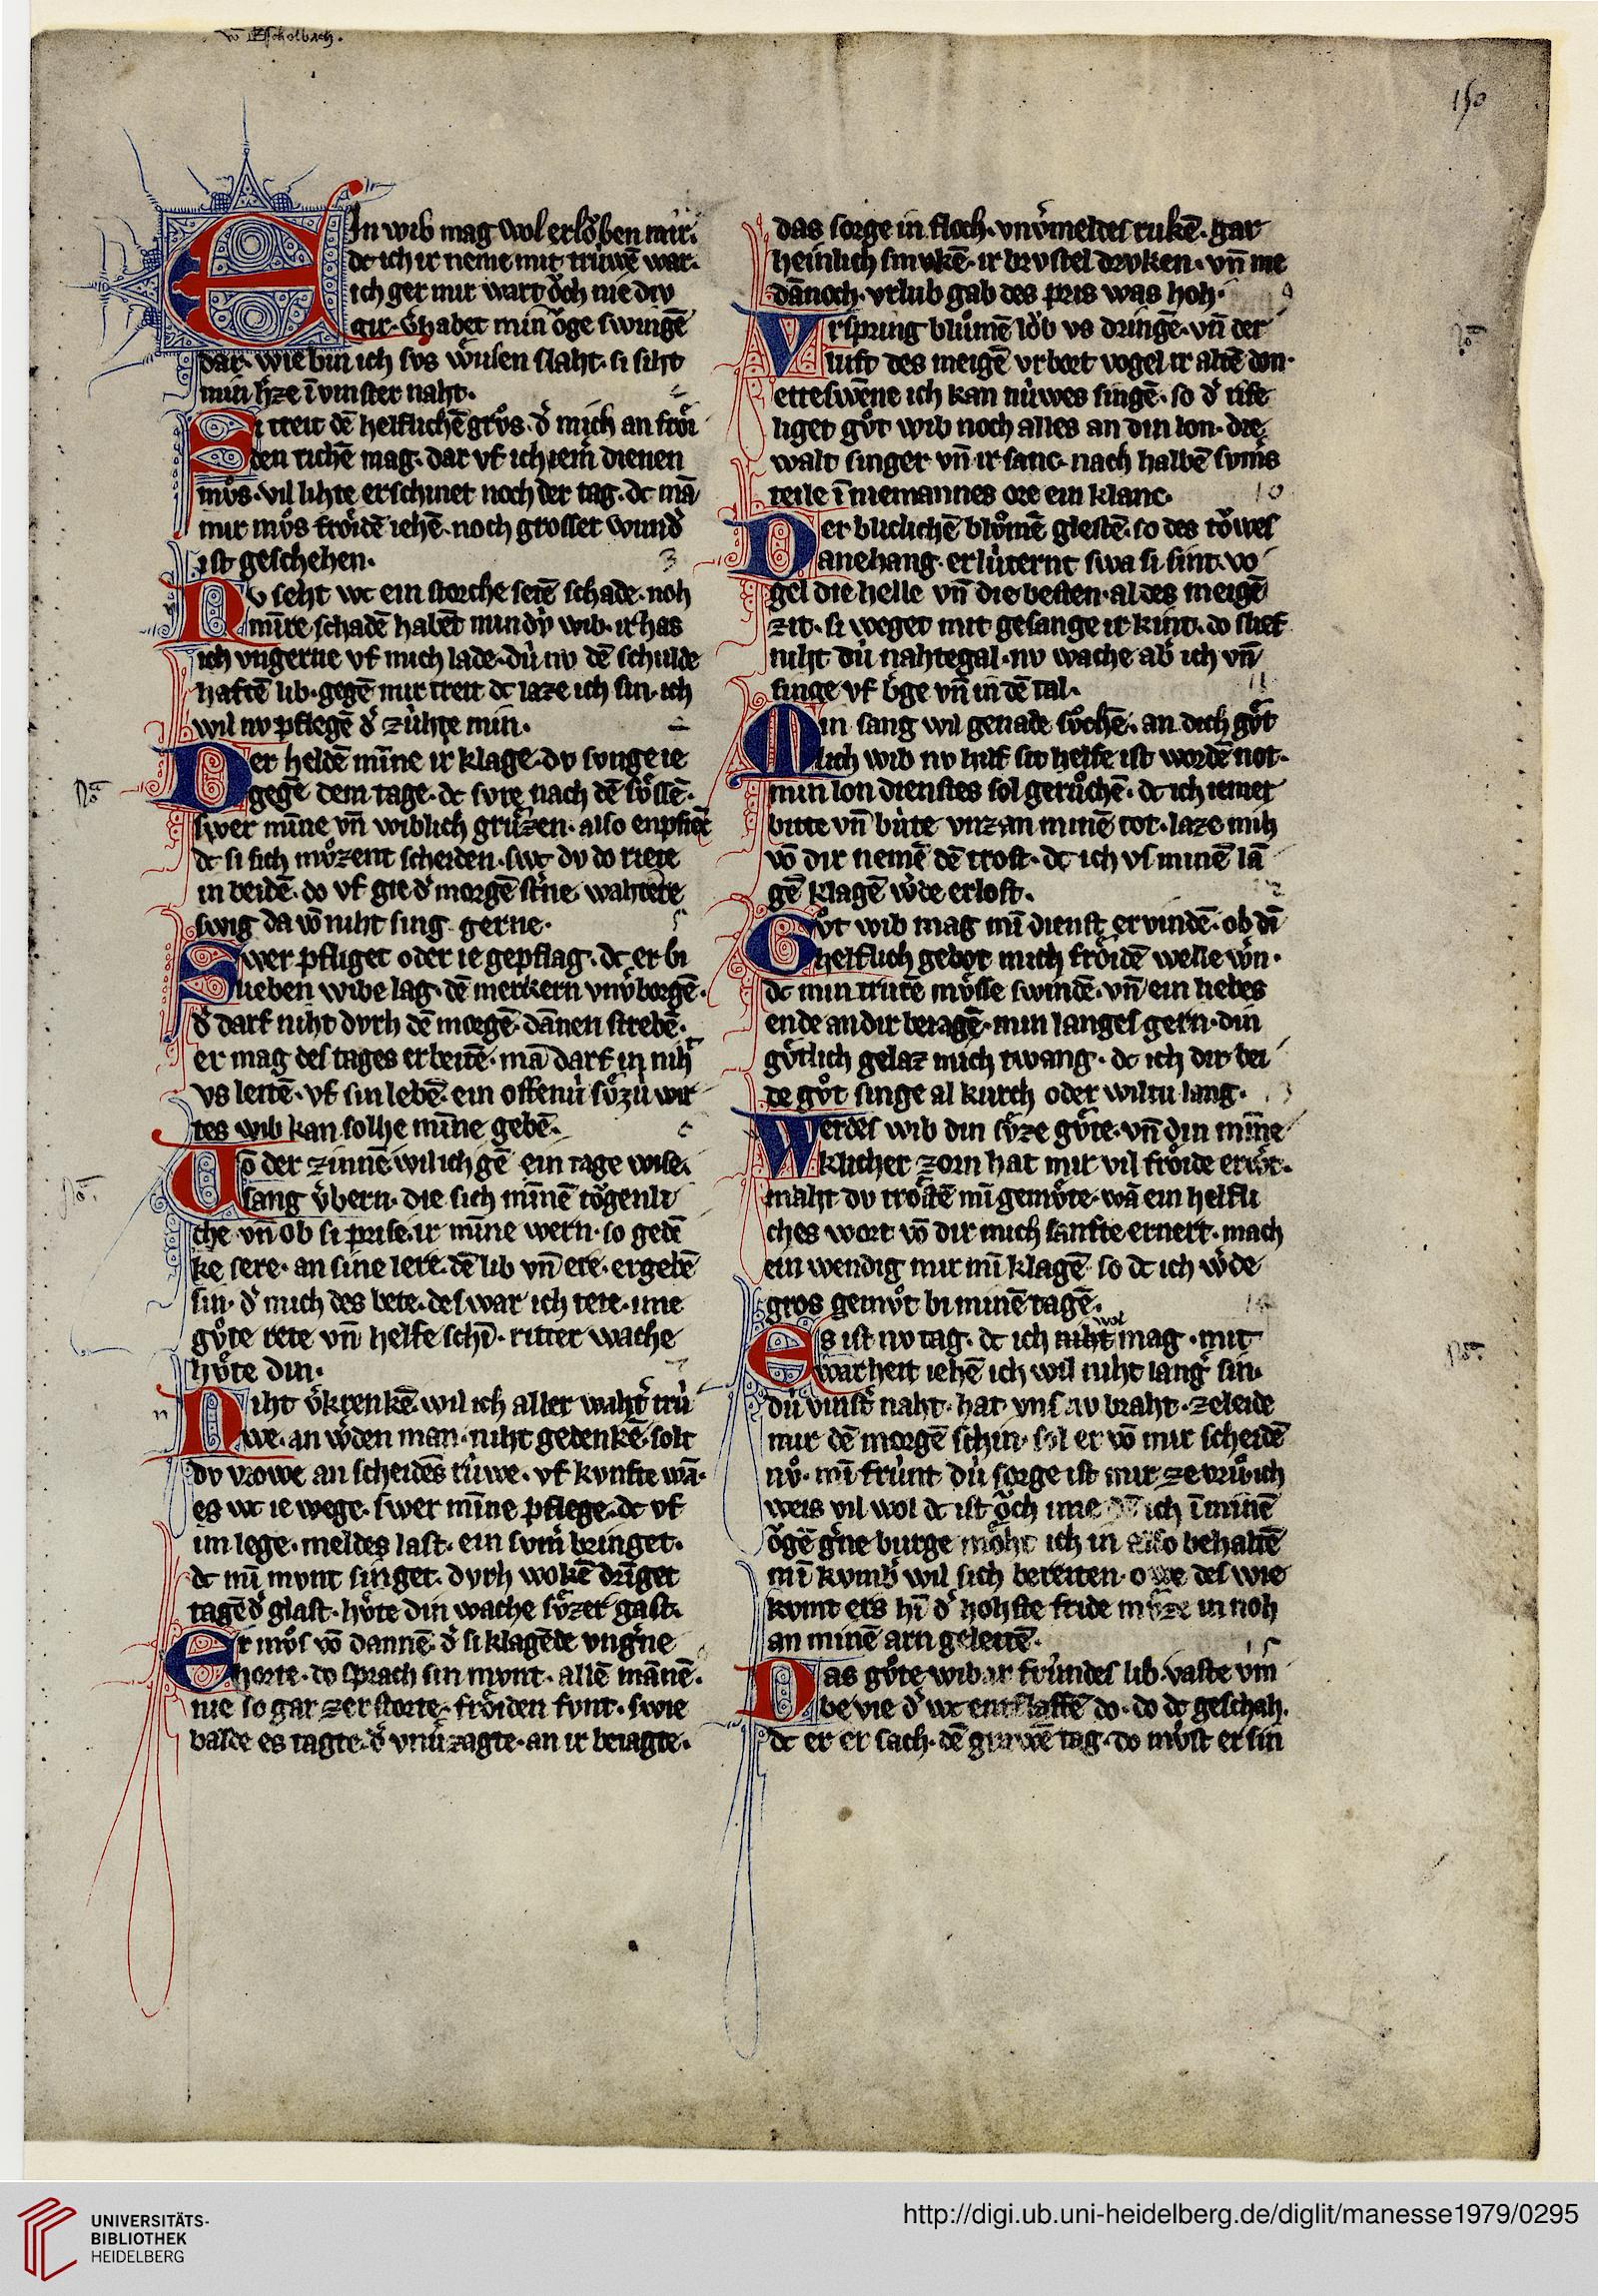 w Eschelbach.
150
Ein wib mag wol erlǒben mir.
dc ich ir neme mit trúwē war.
ich ger mir wart ǒch nie div
gir. v́habet min ǒge swingē
dar. wie bin ich svs v́wlsen slaht. si siht
min hze ī vinster naht.
Si treit dē helflichē grvͦs. d͛ mich an frǒi
den richē mag. dar vf ich iem͛ dienen
mvͦs. vil lihte erschinet noch der tag. dc mā
mir mvͦs frǒidē iehē. noch grosser wund͛
ist geschehen.
3
Nv seht wc ein storche seiē schade. noh
minre schadē habēt min dv́ wib. ir has
ich vngerne vf mich lade. dú nv dē schulde
haftē lib. gegē mir treit dc laze ich sin. ich
wil nv pflegē d͛ zúhte min.
Der heldē mīne ir klage. dv svnge ie
gegē dem tage. dc svre nach dē svͦssē.
swer mīne vn̄ wiblich grvͤzen. also enpfiēc
dc si sich mvͦzent scheiden. swc dv do riete
in beidē. do vf gie d͛ morgē st͛ne. wahtere
swig da vō niht sing gerne.
5
Swer pfliget oder ie gepflag. dc er bi
lieben wibe lag. dē merkern vnv͛borgē.
d͛ darf niht dvrh dē morgē. dānen strebē.
er mag des tages erbeitē. mā darf in niht
vs leitē. vf sin lebē. ein offenú svͦzú wir
tes wib kan solhe mīne gebē.
Vō der zinnē wil ich gē ein tage wise.
sang v͛bern. die sich mīnē tǒgenli
che vn̄ ob si prise. ir mīne wern. so gedē
ke sere. an sine lere. dē lib vn̄ ere. ergebē
sin. d͛ mich des bete. deswar ich tete. ime
gvͦte rete vn̄ helfe schī. ritter wache
hvͤte din.
7
Niht v͛krenkē wil ich aller waht͛ trú
we. an w͛den man. niht gedenkē solt
dv vrowe an scheidēs rúwe. vf kvnfte wā.
es wc ie wege. swer mīne pflege. dc vf
im lege. meldes last. ein svm͛ bringet.
dc mī mvnt singet. dvrh wolkē drīget
tagēd͛ glast. hvͤte din wache svͤzer gast.
Er mvͦs vō dannē. d͛ si klagēde vng͛ne
horte. do sprach sin mvnt. allē mānē.
nie so gar zerstorte. frǒiden fvnt. swie
balde es tagte. d͛ vnūzagte. an ir beiagte.
das sorge in floch. vnv͛meldes rukē. gar
heinlich smvkē. ir brvstel drvken. vn̄ me
dānoch. vrlub gab des pris was hoh.
9
Vrspring blvͦmē lǒb vs dringē. vn̄ der
luft des meigē vrbort vogel ir altē don.
etteswēne ich kan núwes singē. so d͛ rife
liget gvͦt wib noch alles an din lon. die
walt singer vn̄ ir sanc. nach halbē svm͛s
teile ī niemannes ore ein klanc.
10
Der bliclichē blvͦmē gleistē. so des tǒwes
anehang. erlúternt swa si sint. vo
gel die helle vn̄ die besten. al des meigē
zit. si weget mit gesange ir kint. do slief
niht dú nahtegal. nv wache ab͛ ich vn̄
singe vf b͛ge vn̄ in dē tal.
11
Min sang wil genade svͦchē. an dich gvͤt
lich wib nv hilf sit helfe ist wordē not.
min lon dienstes sol gerǔchē. dc ich iemer
bitte vn̄ búte vnz an minē tot. laze mih
vō dir nemē dē trost. dc ich vs minē lā
gē klagē w͛de erlost.
Gvͦt wib mag mī dienst ervindē. ob dī
helflich gebot mich frǒidē welle w͛n.
dc min trurē mvͤsse swindē. vn̄ ein liebes
ende an dir beiagē. min langes gern. din
gvͤtlich gelaz mich twang. dc ich dir bei
de gvͦt singe al kurch oder wiltu lang.
13
Werdes wib din svͤze gvͤte. vn̄ din mīne
klicher zorn hat mir vil frǒide erw͛t.
maht dv trǒstē mī gemvͤte. wā ein helfli
ches wort vō dir mich sanfte ernert. mach
ein wendig mir mī klagē so dc ich w͛de
gros gemvͦt bi minē tagē.
14
Es ist nv tag. dc ich niht wol mag. mit
warheit iehē ich wil niht lang͛ sin.
dú vinst͛ naht. hat vns nv braht. zeleide
mir dē morgē schin. sol er vō mir scheidē
nvͦ. mī frúnt dú sorge ist mir ze vrǔ. ich
weis vil wol dc ist ǒch ime ich ī minē
ǒgē g͛ne burge mǒht ich in also behaltē
mī kvmb͛ wil sich bereiten. owe des wie
kvmt ers hī d͛ hohste fride mvͤze in noh
an minē arn geleitē.
15
Das gvͤte wib ir frúndes lib. vaste vm
bevie d͛ wc entslaffē do. do dc geschah.
dc er er sach. dē grawē tag. do mvͦst er sin
UNIVERSITÄTS-
BIBLIOTHEK
HEIDELBERG
http://digi.ub.uni-heidelberg.de/diglit/manesse1979/0295